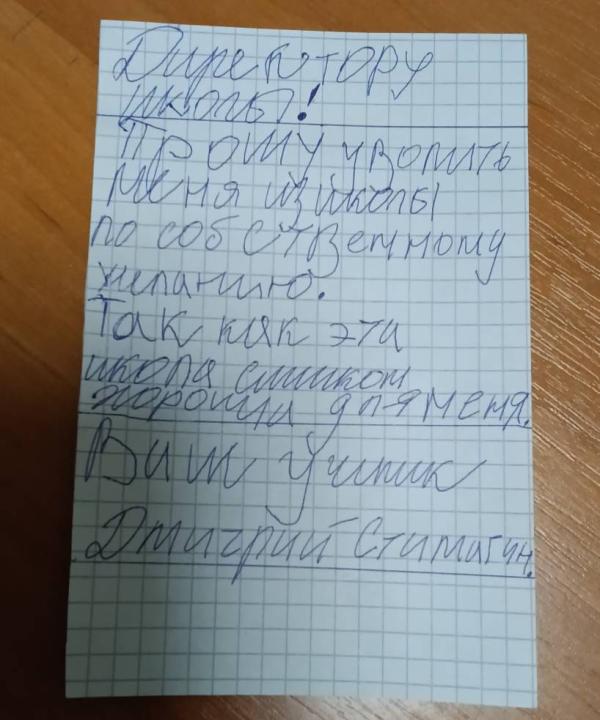 Директору
школы!
Прошу уволить
меня из школы
по собственному
желанию.
Так как эта
школа слишком
хороша для меня.
Ваш ученик
Дмитрий